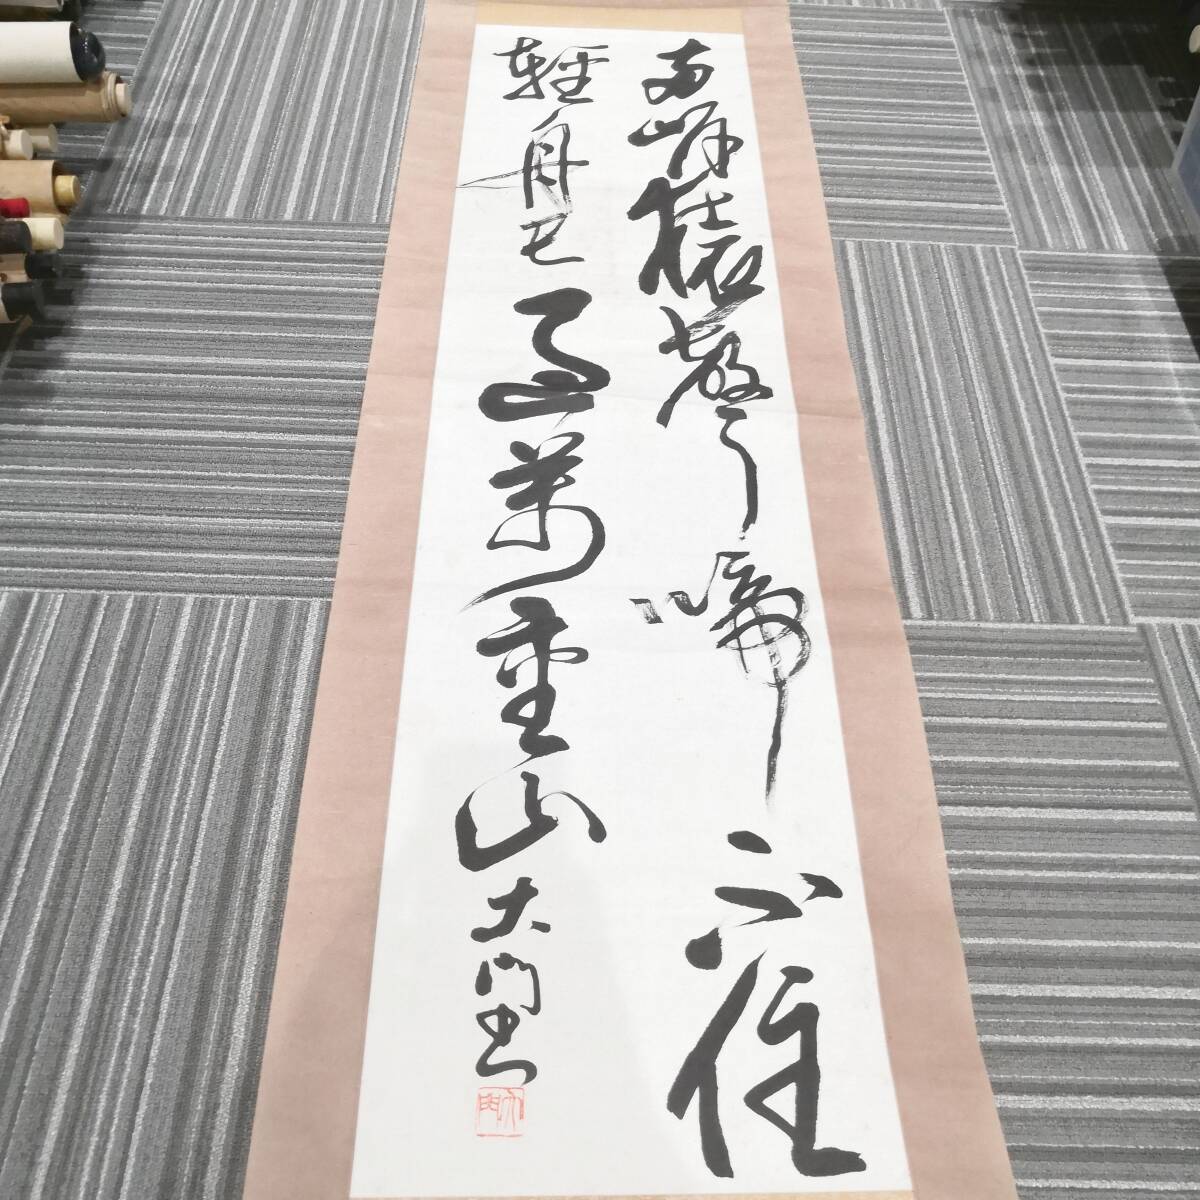 兩岸猿聲啼不住
輕舟已過萬重山
大門書
大門